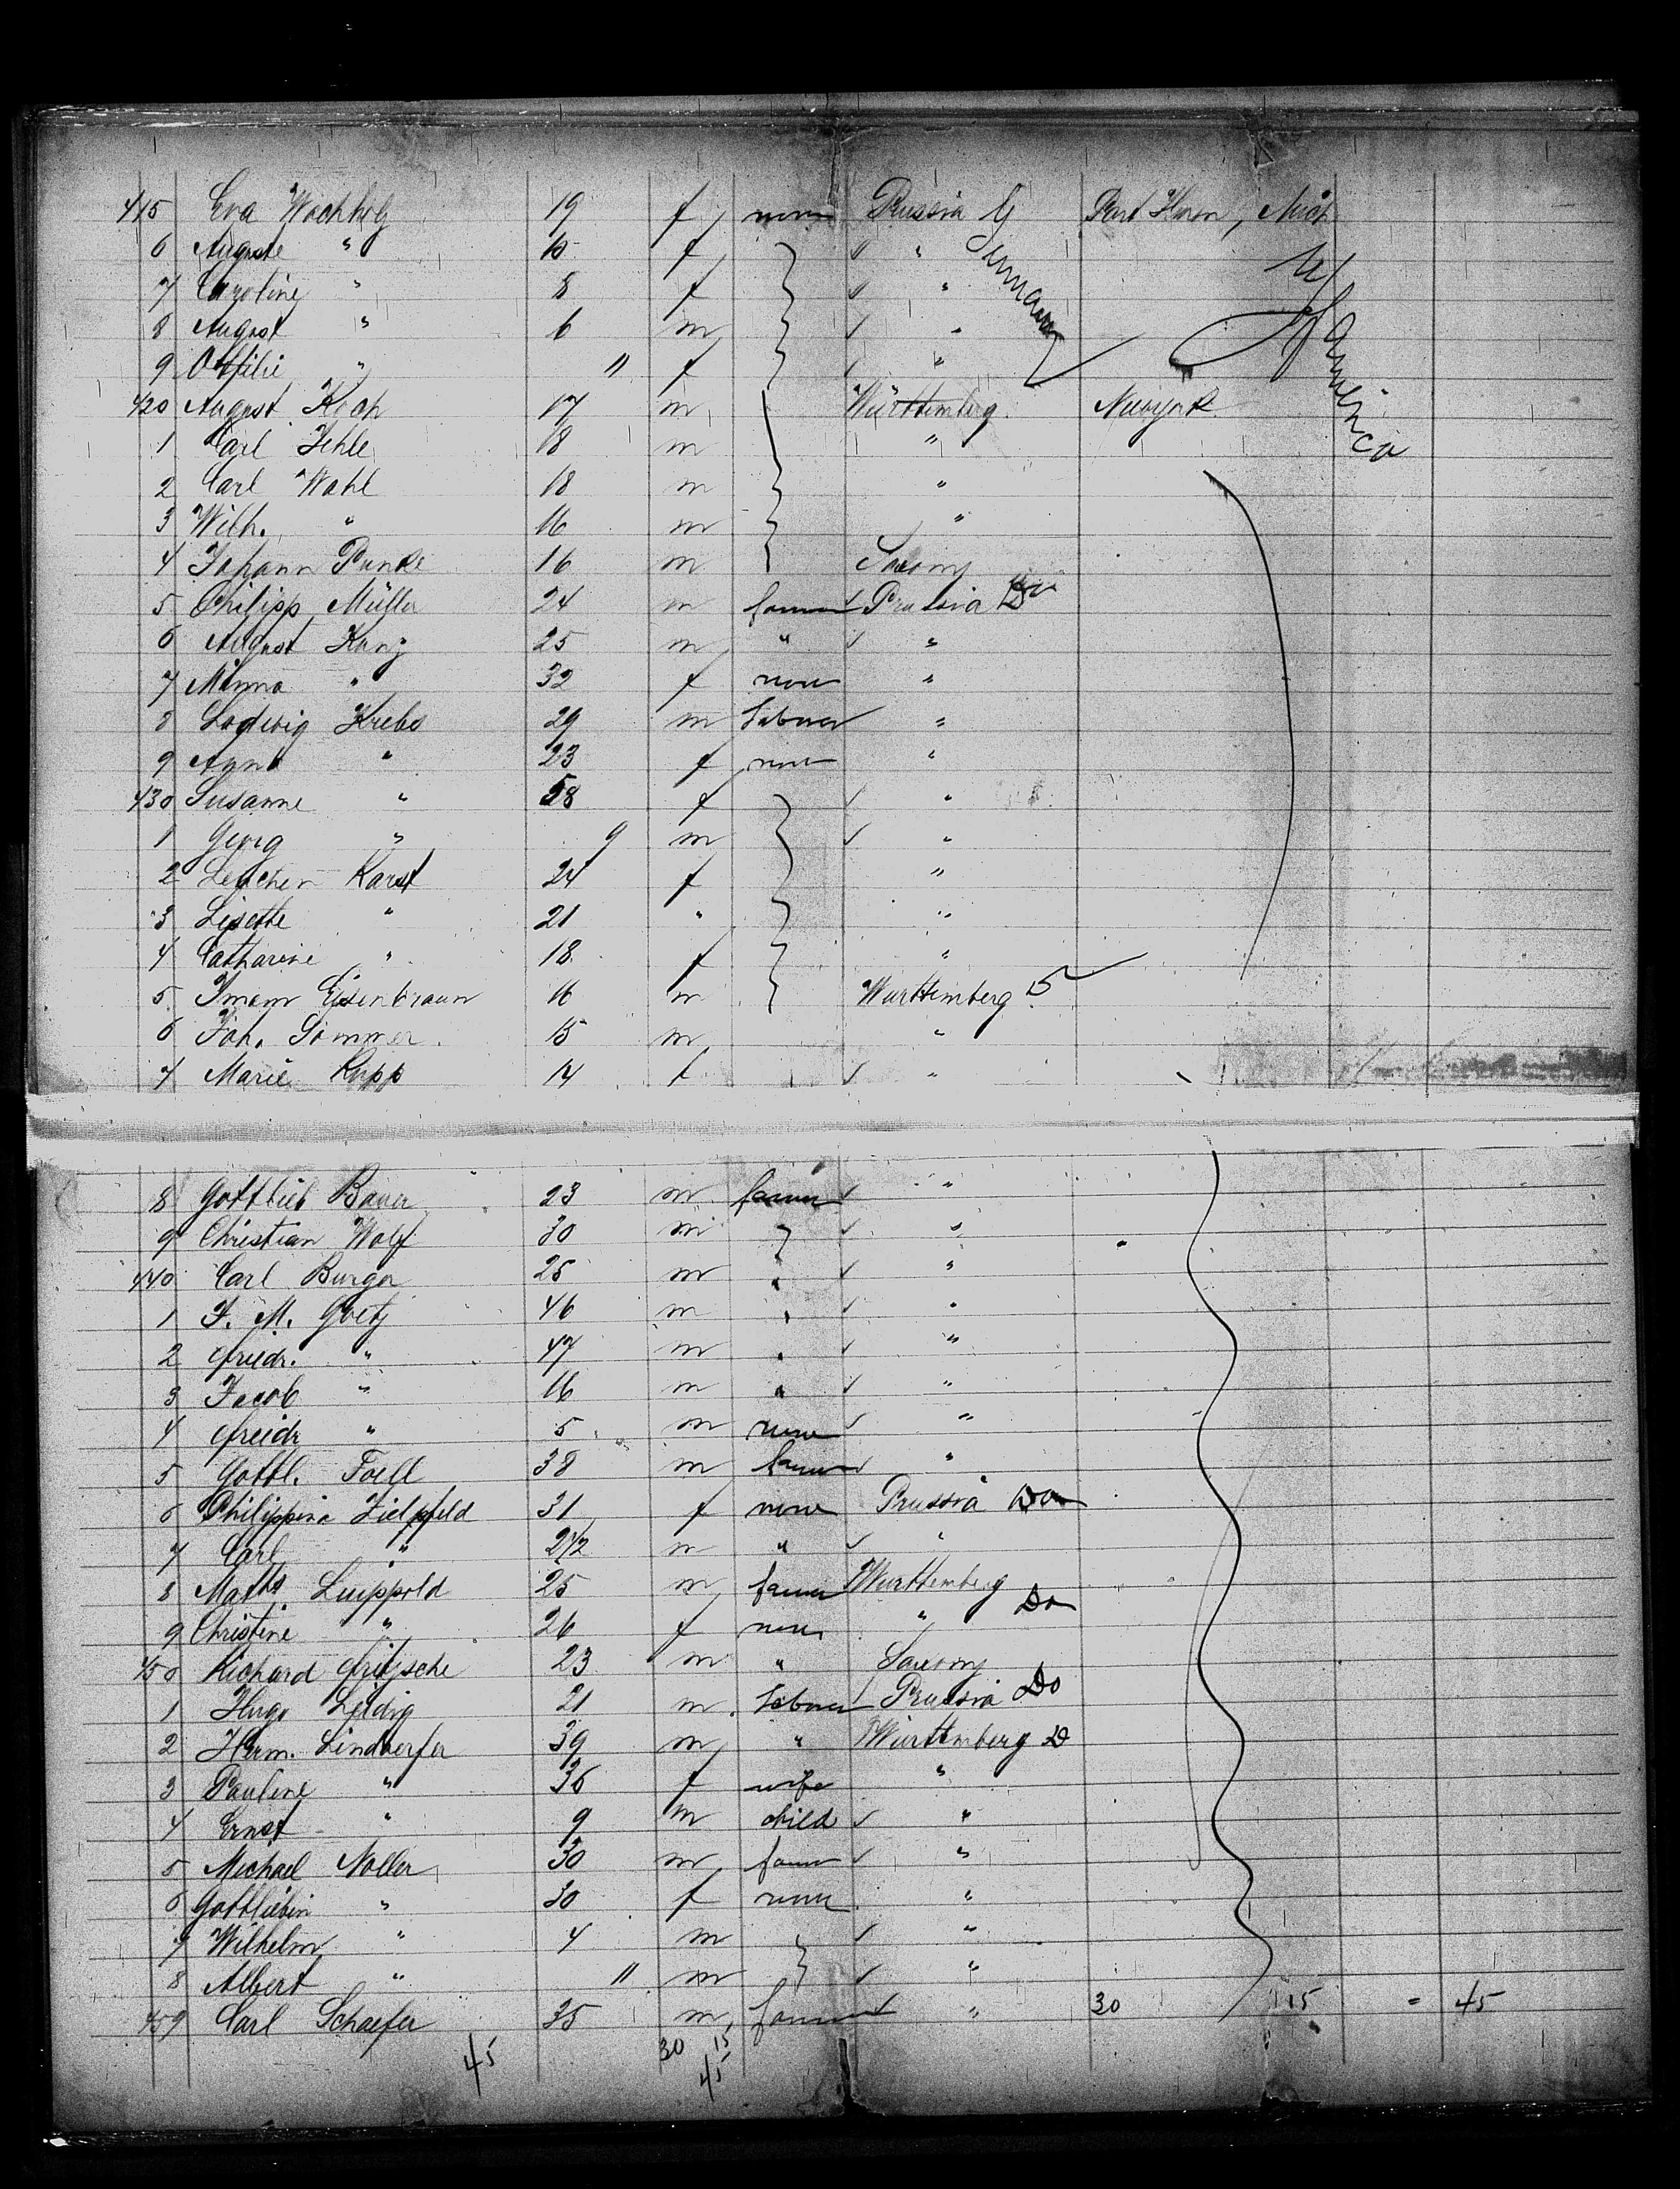 415 Eva Wachholz 19 f none Prussia G Port Huron, Mich
6 Auguste " 10 f " Germany N America
7 Caroline " 8 f "
8 August " 6 m "
9 Ottilie " 11 f "
420 August Koch 17 m Württemberg Newyork
1 Carl Jehle 18 m "
2 Carl Wahl 18 m "
3 Wilh. " 16 m "
4 Johann Punke 16 m Saxony
5 Philipp Müller 24 m farmer Prussia Do
6 August Kunz 25 m " "
7 Minna " 32 f none "
8 Ludwig Krebs 29 m laborer "
9 Anna " 23 f none "
430 Susanne " 58 f "
1 Georg " 9 m "
2 Lenchen Karst 24 f "
3 Lisette " 21 " "
4 Catharine " 18 f "
5 Imam Eisenbraun 16 m Württemberg D
6 Joh. Sommer 15 m "
7 Marie Rupp 14 f "
8 Gottlieb Bauer 23 m farmer "
9 Christian Wolf 30 m "
440 Carl Burger 25 m " "
1 J. M. Goetz 46 m " "
2 Friedr. " 47 m " "
3 Jacob " 16 m " "
4 Freidr " 5 m none "
5 Gottl. Foell 38 m farmer "
6 Philippina Zielpfeld 31 f none Prussia Do
7 Carl " 2 1/2 m " "
8 Maths Luippold 25 m farmer Württemberg
9 Christine " 26 f none " Do
450 Richard Fritzsche 23 m " Saxony
1 Hugo Leidig 21 m laborer Prussia Do
2 Herm. Lindoerfer 39 m " Württemberg D
3 Pauline " 36 f wife "
4 Ernst " 9 m child "
5 Michael Noller 30 m farmer "
6 Gottliebin " 30 f none "
7 Wilhelm " 4 m "
8 Albert " 11 m "
459 Carl Schaefer 35 m farmer " 30 15 = 45
45 30 15
45